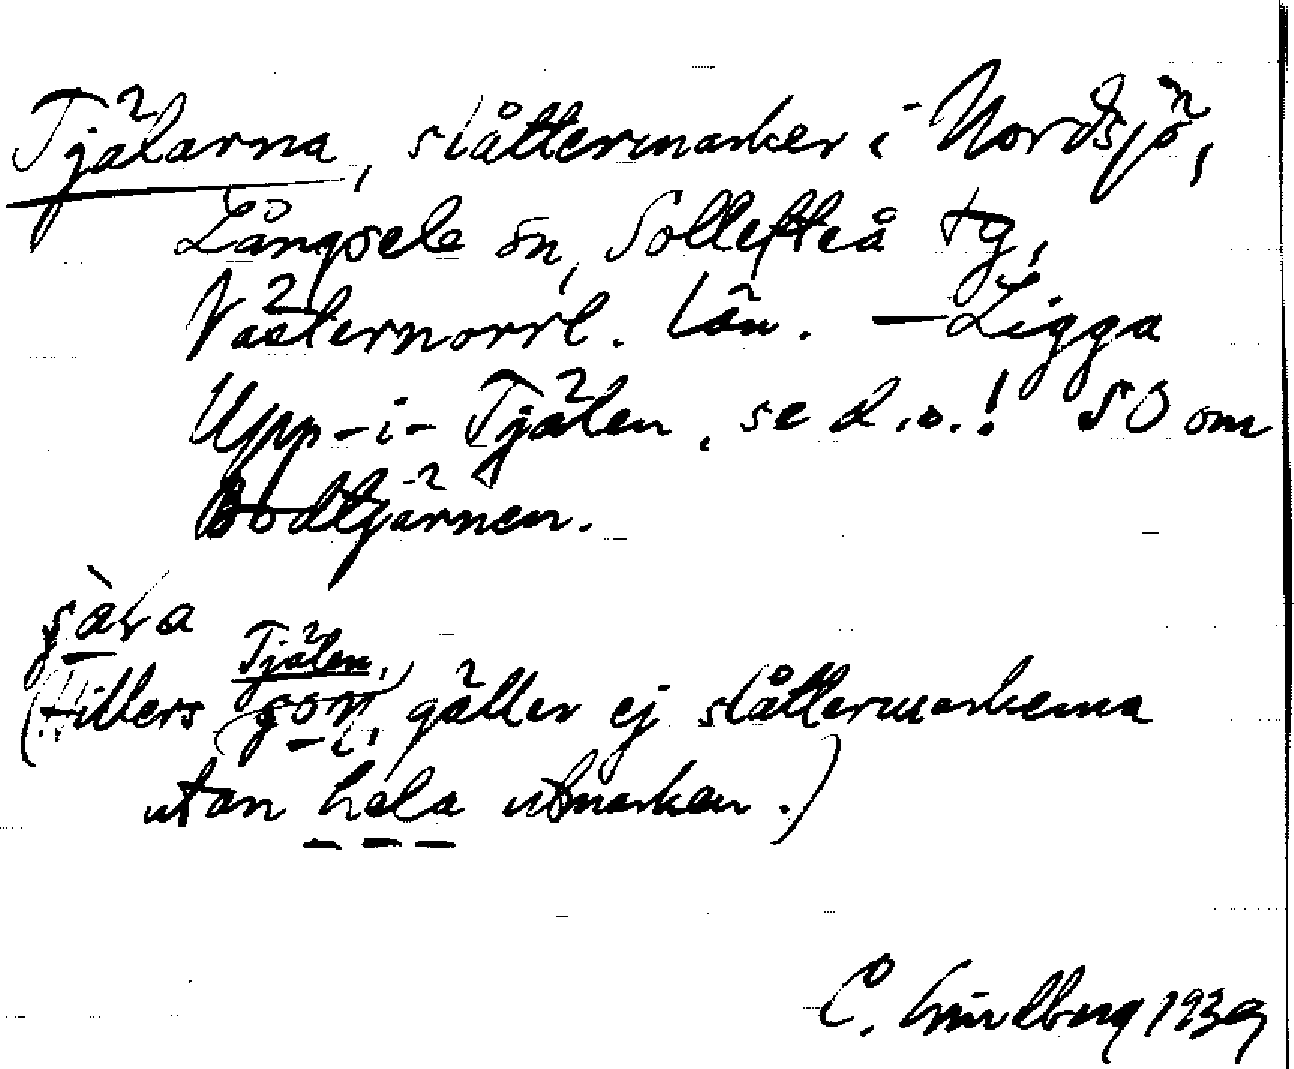 Tjälarna, slåttermarker i Nordsjö,
Långsele sn, Sollefteå tg,
Västernorrl. län. — Ligga
Upp-i-Tjälen, se d.o.! SO om
Bodtjärnen.
Tjälen,
(Hillers gäller ej slåttermarkerna
utan hela utmarken.)
C. Lindberg 1939